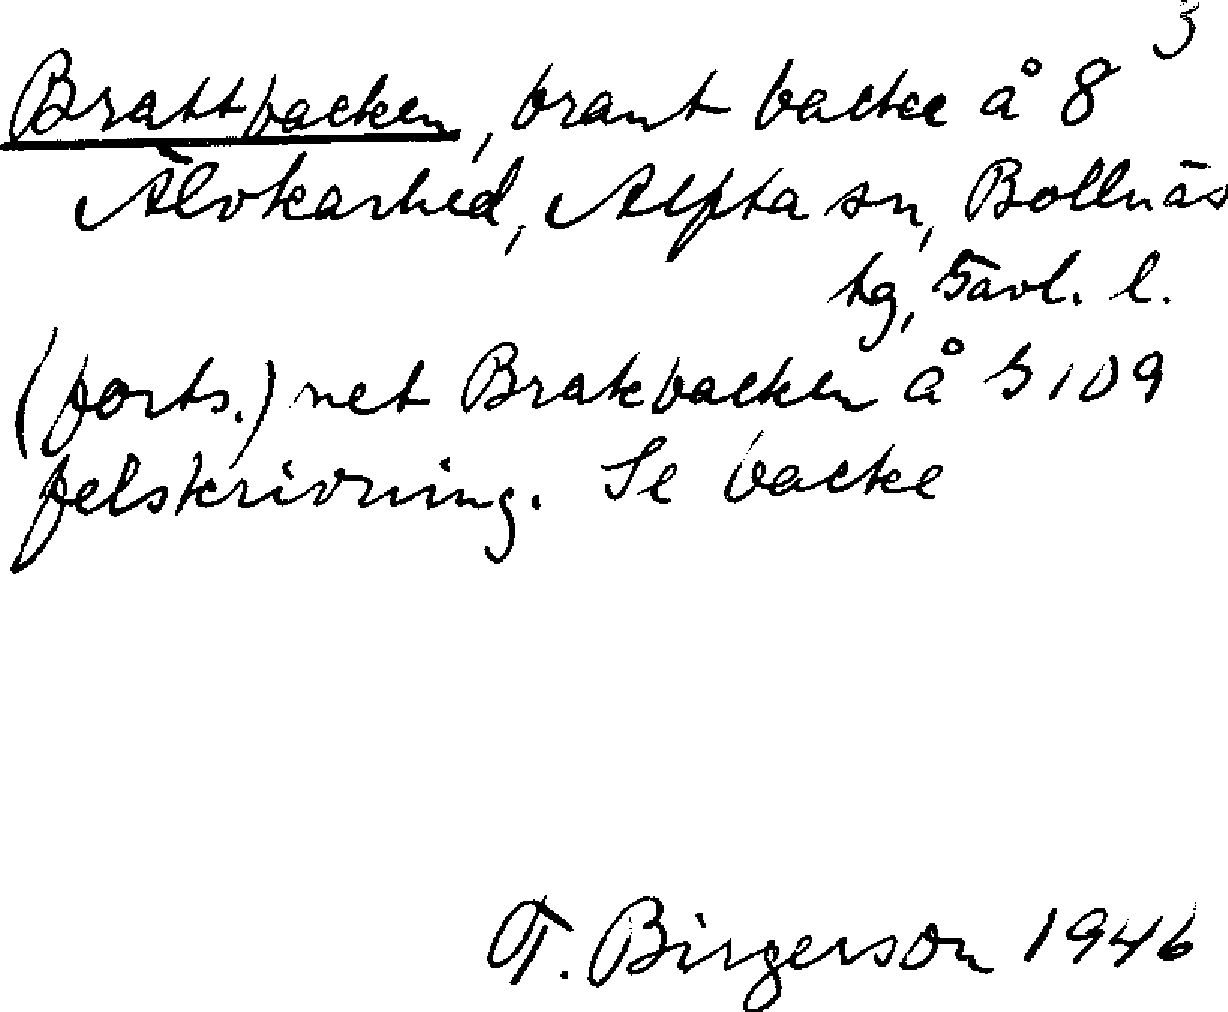 3
Brattbacken, brant backe å 8
Älvkarhed, Alfta sn, Bollnäs
tg, Gävl. l.
(forts.) net Brakbacken å 5109
felskrivning. Se backe
T. Birgerson 1946